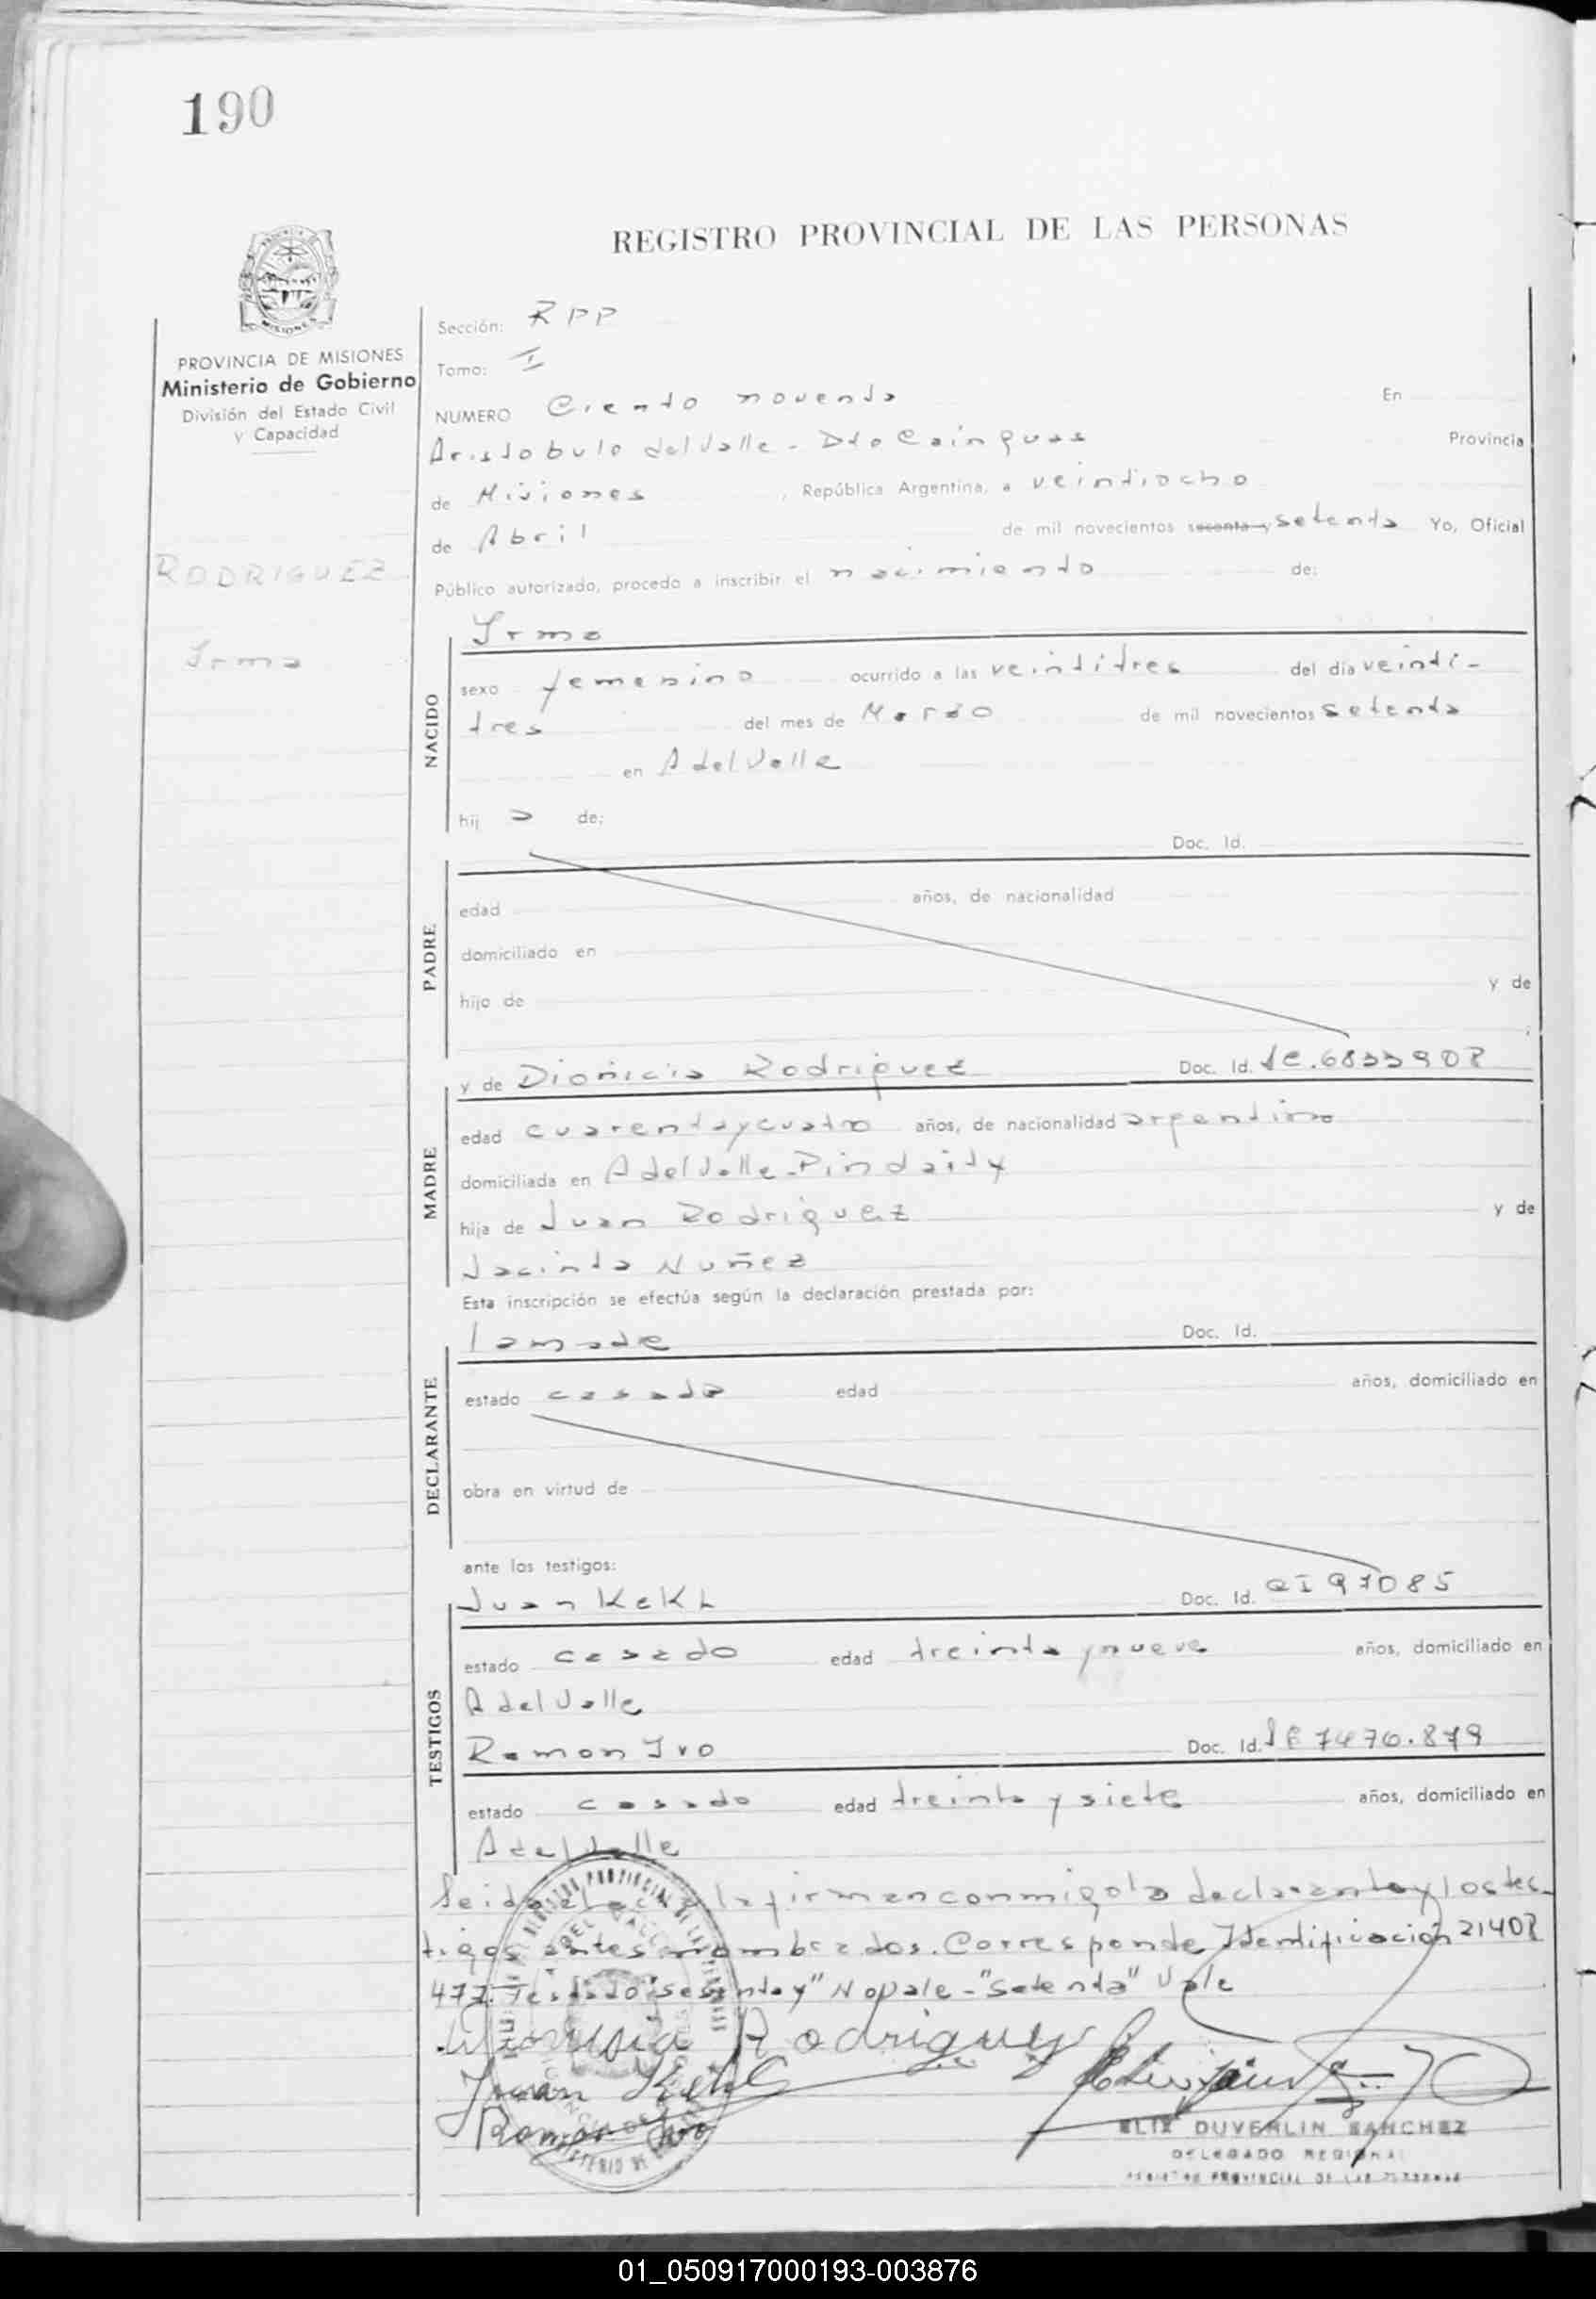 190
REGISTRO PROVINCIAL DE LAS PERSONAS
PROVINCIA DE MISIONES
Ministerio de Gobierno
División del Estado Civil
y Capacidad
RODRIGUEZ
Irma
Sección: RPP
Tomo: I
NUMERO Ciento noventa En
Aristobulo del Valle - Dto Cainguas Provincia
de Misiones , República Argentina, a veintiocho
de Abril de mil novecientos sesenta y setenta Yo, Oficial
Público autorizado, procedo a inscribir el nacimiento de:
Irma
NACIDO
sexo femenino ocurrido a las veintitres del día veinti-
tres del mes de Marzo de mil novecientos setenta
en A del Valle
hij a de:
Doc. Id.
PADRE
edad años, de nacionalidad
domiciliado en
hijo de y de
y de Dionicia Rodriguez Doc. Id. 
MADRE
edad cuarenta y cuatro años, de nacionalidad argentina
domiciliada en A del Valle - Pindaity
hija de Juan Rodriguez y de
Jacinta Nuñez
Esta inscripción se efectúa según la declaración prestada por:
la madre Doc. Id.
DECLARANTE
estado casada edad años, domiciliado en
obra en virtud de
ante los testigos:
Juan KeKL Doc. Id. 
TESTIGOS
estado casado edad treinta y nueve años, domiciliado en
A del Valle
Ramon Ivo Doc. Id. 7476.879
estado casado edad treinta y siete años, domiciliado en
A del Valle
Leida el acta la firman conmigo la declarante y los tes-
tigos antes nombrados. Corresponde Identificación 21408
477. Testado "sesenta y" No vale - "setenta" Vale
Rodriguez
Juan
Ramon Ivo
ELIX DUVERLIN SANCHEZ
DELEGADO REGIONAL
REGISTRO PROVINCIAL DE LAS PERSONAS
01_050917000193-003876